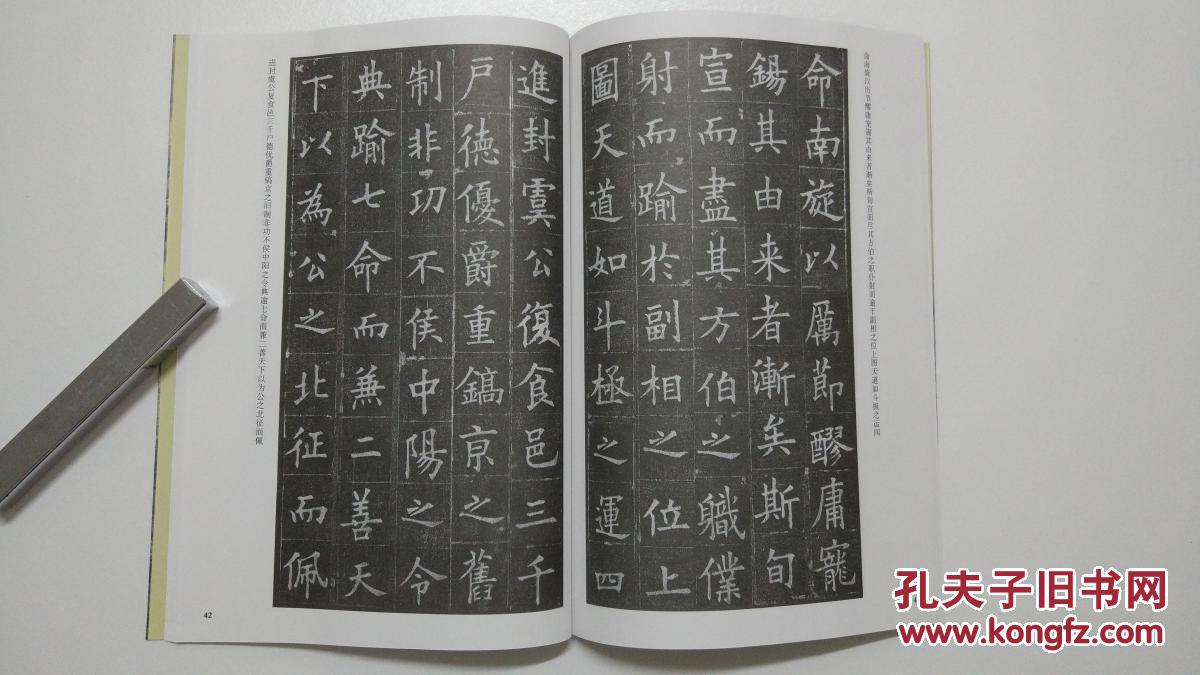 命南旋以厉节醪庸宠锡其由来者渐矣斯旬宣而尽其方伯之职仆射而逾于副相之位上图天道如斗极之运四
命南旋以厲節醪庸寵
錫其由来者漸矣斯旬
宣而盡其方伯之職僕
射而踰於副相之位上
圖天道如斗極之運四
進封虞公復食邑三千
戶德優爵重鎬京之舊
制非功不侯中陽之令
典踰七命而兼二善天
下以為公之北征而佩
进封虞公复食邑三千户德优爵重镐京之旧制非功不侯中阳之令典逾七命而兼二善天下以为公之北征而佩
42
孔夫子旧书网
www.kongfz.com